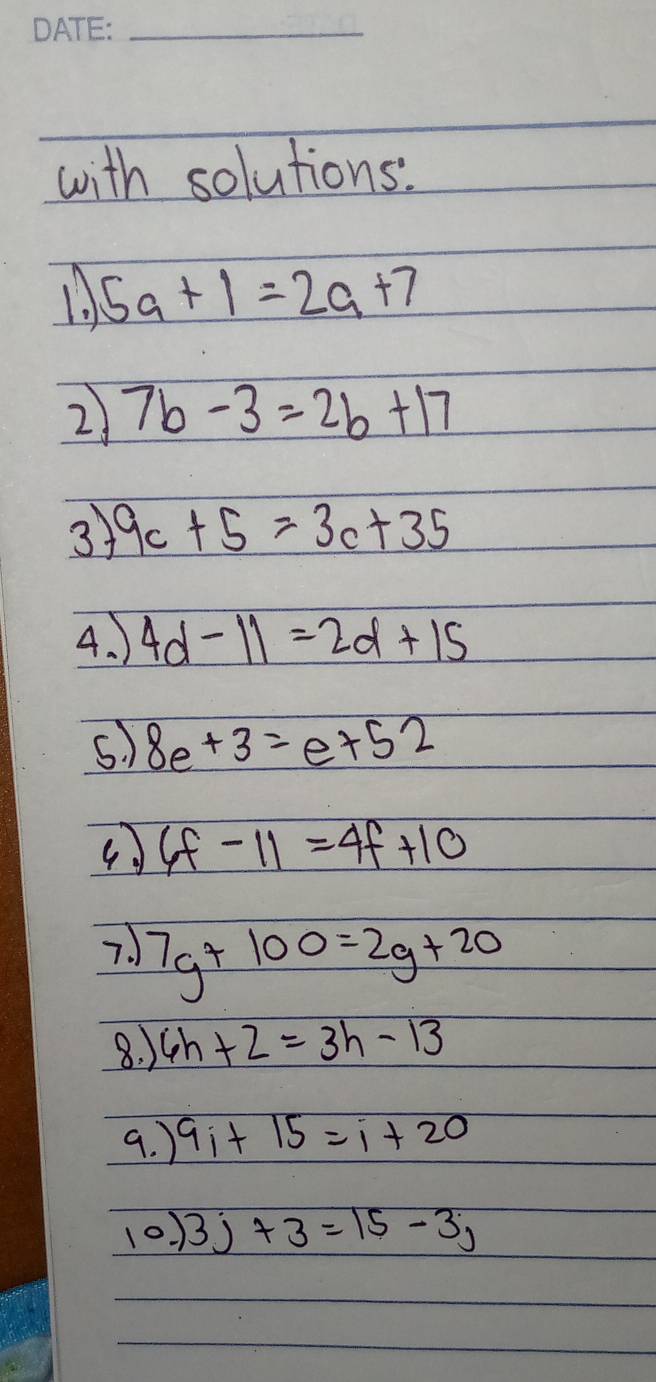 DATE:
with solutions:
1.) 5a + 1 = 2a + 7
2.) 7b - 3 = 2b + 17
3.) 9c + 5 = 3c + 35
4.) 4d - 11 = 2d + 15
5.) 8e + 3 = e + 52
6.) 6f - 11 = 4f + 10
7.) 7g + 100 = 2g + 20
8.) 6h + 2 = 3h - 13
9.) 9i + 15 = i + 20
10.) 3j + 3 = 15 - 3j